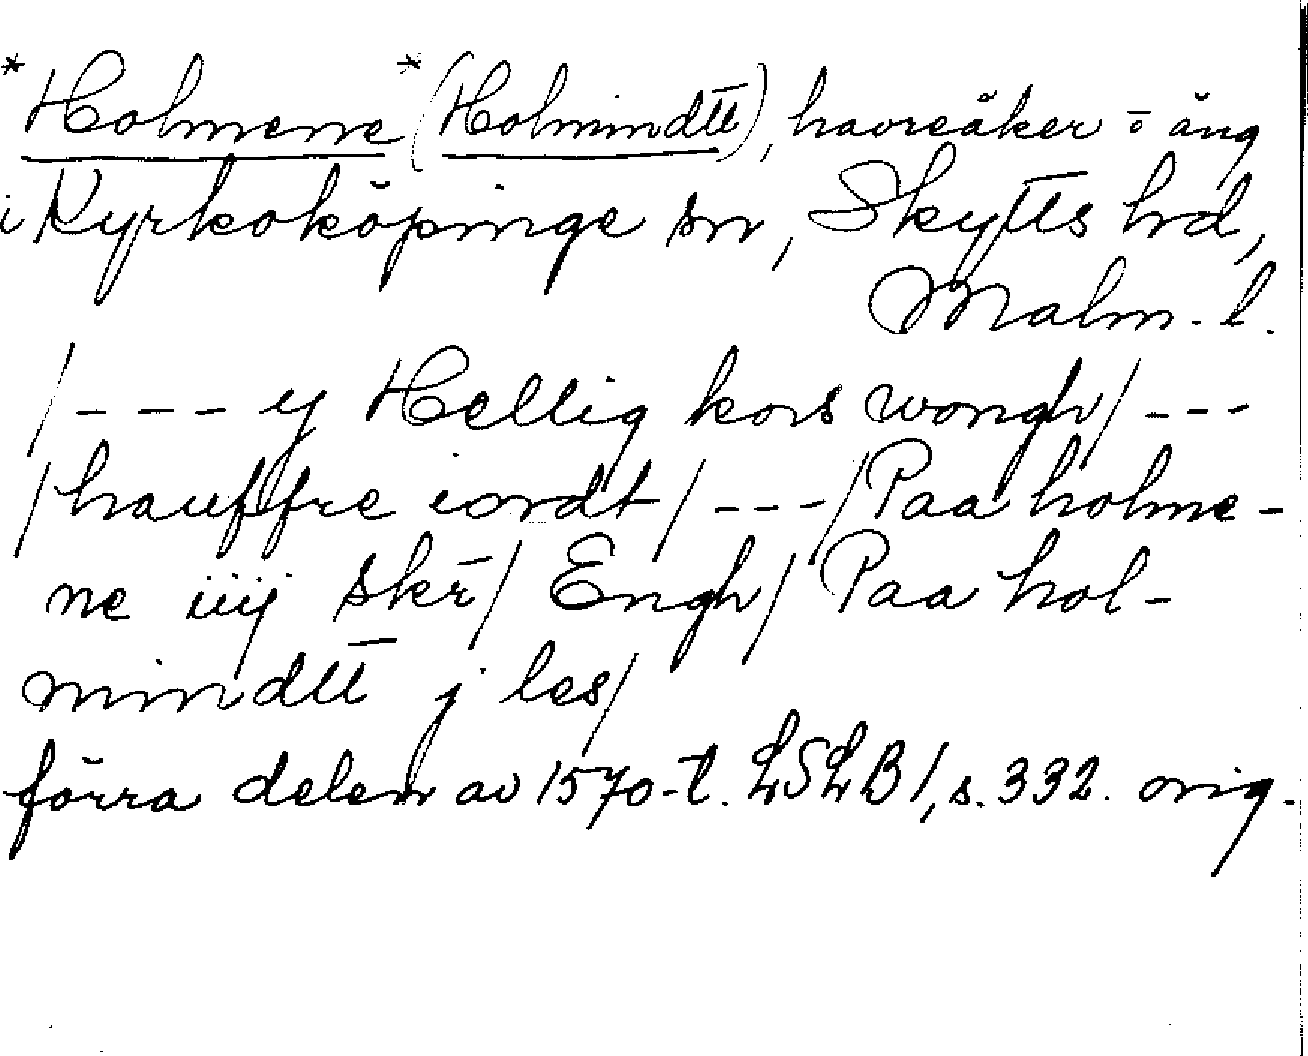 *Holmene *(Holmindtt), havreåker o äng
i Kyrkoköpinge sn, Skytts hd,
Malm. l.
/--- y Hellig kors wongh/ ---
/hauffre iordt/ ---/Paa holme-
ne iiij skr̄/ Engh/ Paa hol-
mindtt j les/
förra delen av 1570-t. LSLB 1, s. 332. orig.